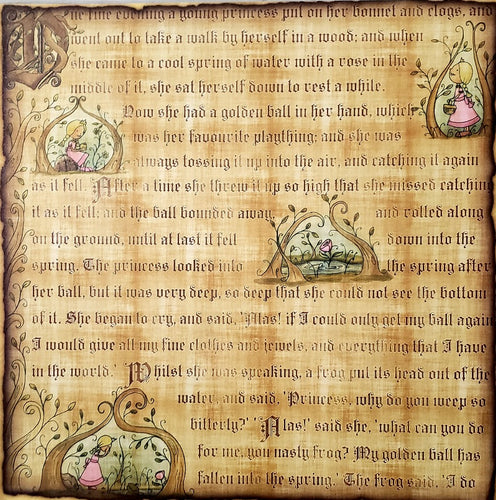 One fine evening a young princess put on her bonnet and clogs, and
went out to take a walk by herself in a wood; and when
she came to a cool spring of water with a rose in the
middle of it, she sat herself down to rest a while.
Now she had a golden ball in her hand, which
was her favourite plaything; and she was
always tossing it up into the air, and catching it again
as it fell. After a time she threw it up so high that she missed catching
it as it fell; and the ball bounded away, and rolled along
on the ground, until at last it fell down into the
spring. The princess looked into the spring after
her ball, but it was very deep, so deep that she could not see the bottom
of it. She began to cry, and said, 'Alas! if I could only get my ball again
I would give all my fine clothes and jewels, and everything that I have
in the world.' Whilst she was speaking, a frog put its head out of the
water, and said, 'Princess, why do you weep so
bitterly?' 'Alas!' said she, 'what can you do
for me, you nasty frog? My golden ball has
fallen into the spring.' The frog said, 'I do